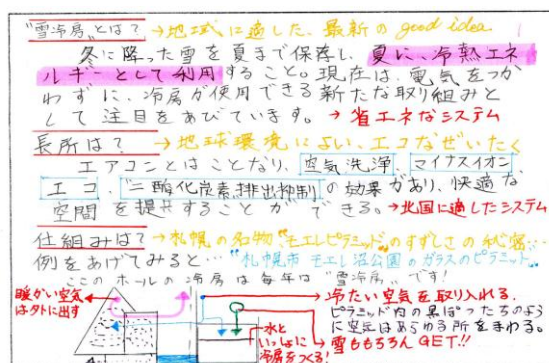 "雪冷房"とは? →地域に適した、最新の good idea
冬に降った雪を夏まで保存し、夏に、冷熱エネ
ルギーとして利用すること。現在は、電気をつか
わずに、冷房が使用できる新たな取り組みと
して注目をあびています。→省エネなシステム
長所は? →地球環境によい、エコなぜいたく
エアコンとはことなり、空気洗浄 マイナスイオン
エコ、二酸化炭素排出抑制の効果があり、快適な
空間を提供することができる。→北国に適したシステム
仕組みは? →札幌の名物"モエレピラミッド"のすずしさの秘密…
例をあげてみると…"札幌市 モエレ沼公園のガラスのピラミッド"
ここのホールの冷房は毎年は"雪冷房"です!
暖かい空気
は外に出す
冷たい空気を取り入れる
ピラミッド内の
に空気はあらゆる所をまわる。
雪ももちろんGET!!
水と
いっしょに
冷房をつくる!